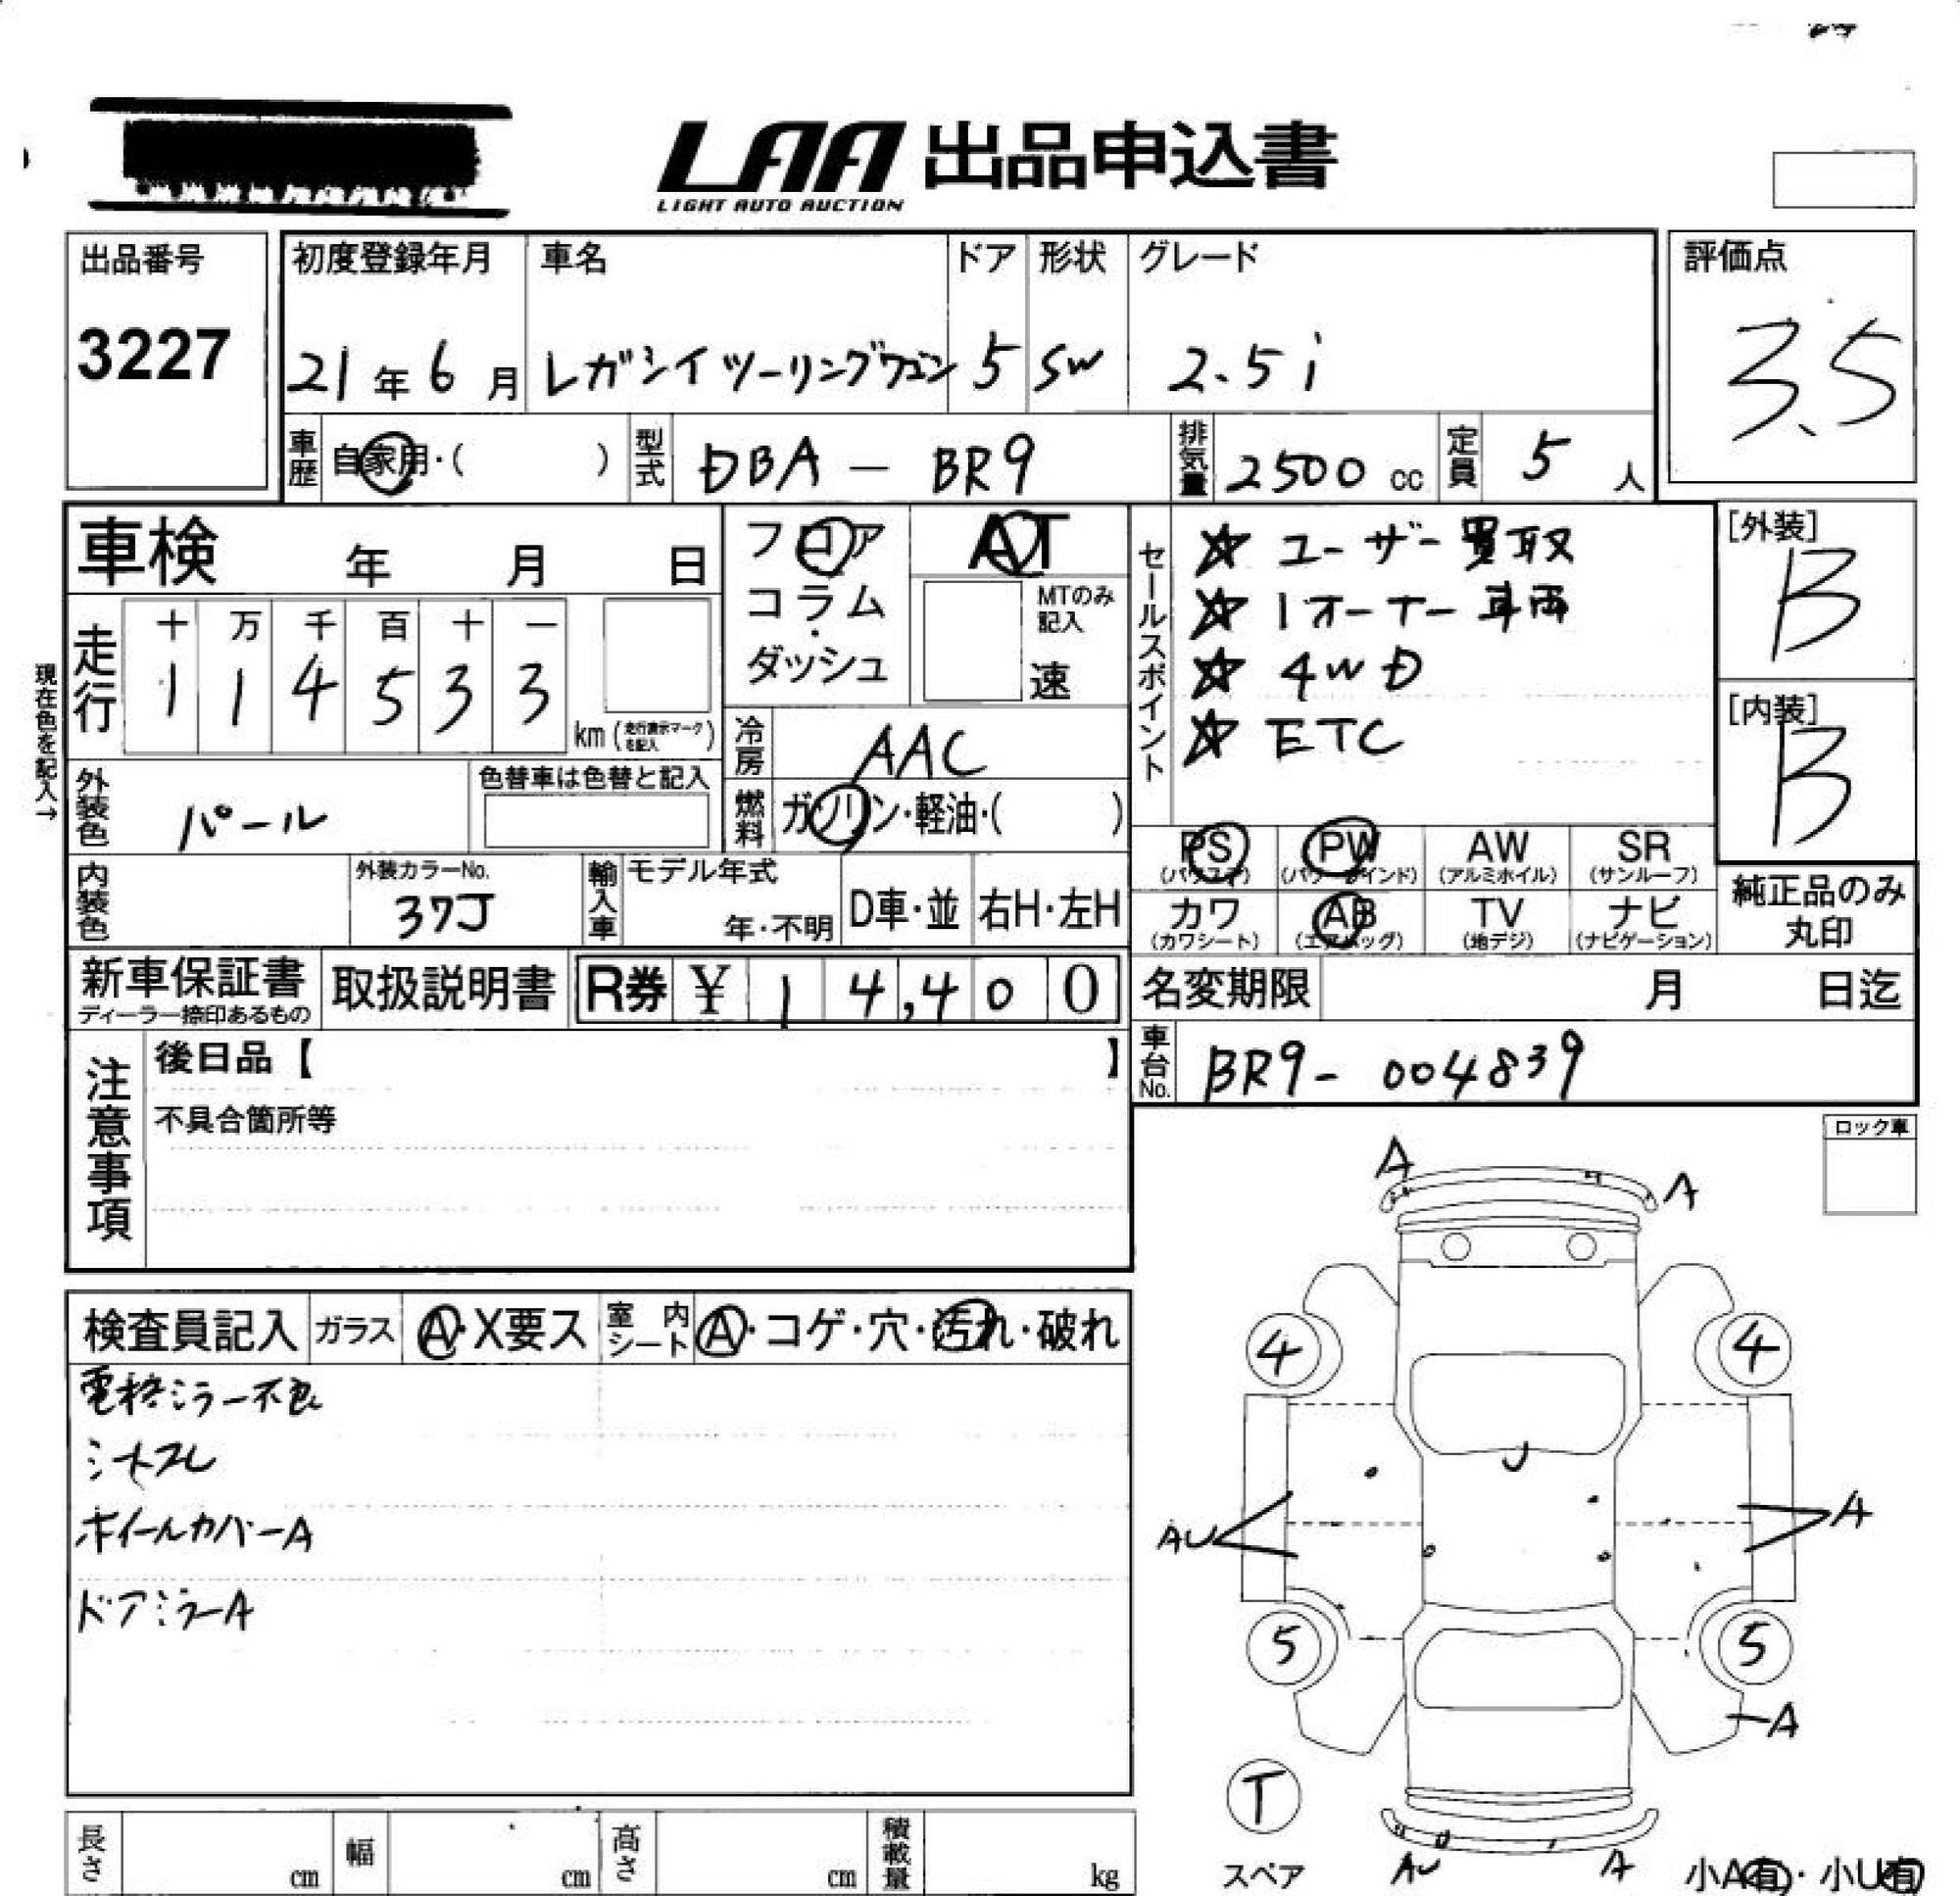 LAA 出品申込書
LIGHT AUTO AUCTION
出品番号
3227
初度登録年月
21年6月
車名
レガシイツーリングワゴン
ドア
5
形状
SW
グレード
2.5i
評価点
3.5
車歴 自家用・( )
型式 DBA-BR9
排気量 2500cc
定員 5人
車検 年 月 日
走行 十 万 千 百 十 一
1 1 4 5 3 3
km(走行表示マークを記入)
現在色を記入→
フロア
コラム
・
ダッシュ
AT
MTのみ記入
速
冷房 AAC
燃料 ガソリン・軽油・( )
セールスポイント
☆ ユーザー買取
☆ 1オーナー車両
☆ 4WD
☆ ETC
[外装]
B
[内装]
B
外装色 パール
色替車は色替と記入
内装色
外装カラーNo.
37J
輸入車 モデル年式
年・不明
D車・並
右H・左H
PS (パワステ)
PW (パワーウインド)
AW (アルミホイル)
SR (サンルーフ)
カワ (カワシート)
AB (エアバッグ)
TV (地デジ)
ナビ (ナビゲーション)
純正品のみ丸印
新車保証書
ディーラー捺印あるもの
取扱説明書
R券 ¥ 14,400
名変期限 月 日迄
車台No. BR9-004839
注意事項
後日品【 】
不具合箇所等
ロック車
検査員記入 ガラス A・X要ス 室内シート A・コゲ・穴・汚れ・破れ
電格ミラー不良
シートスレ
ホイールカバーA
ドアミラーA
A
A
4
4
U
AU
A
5
5
A
T
スペア
AU
A
小A有・小U有
長さ cm
幅 cm
高さ cm
積載量 kg